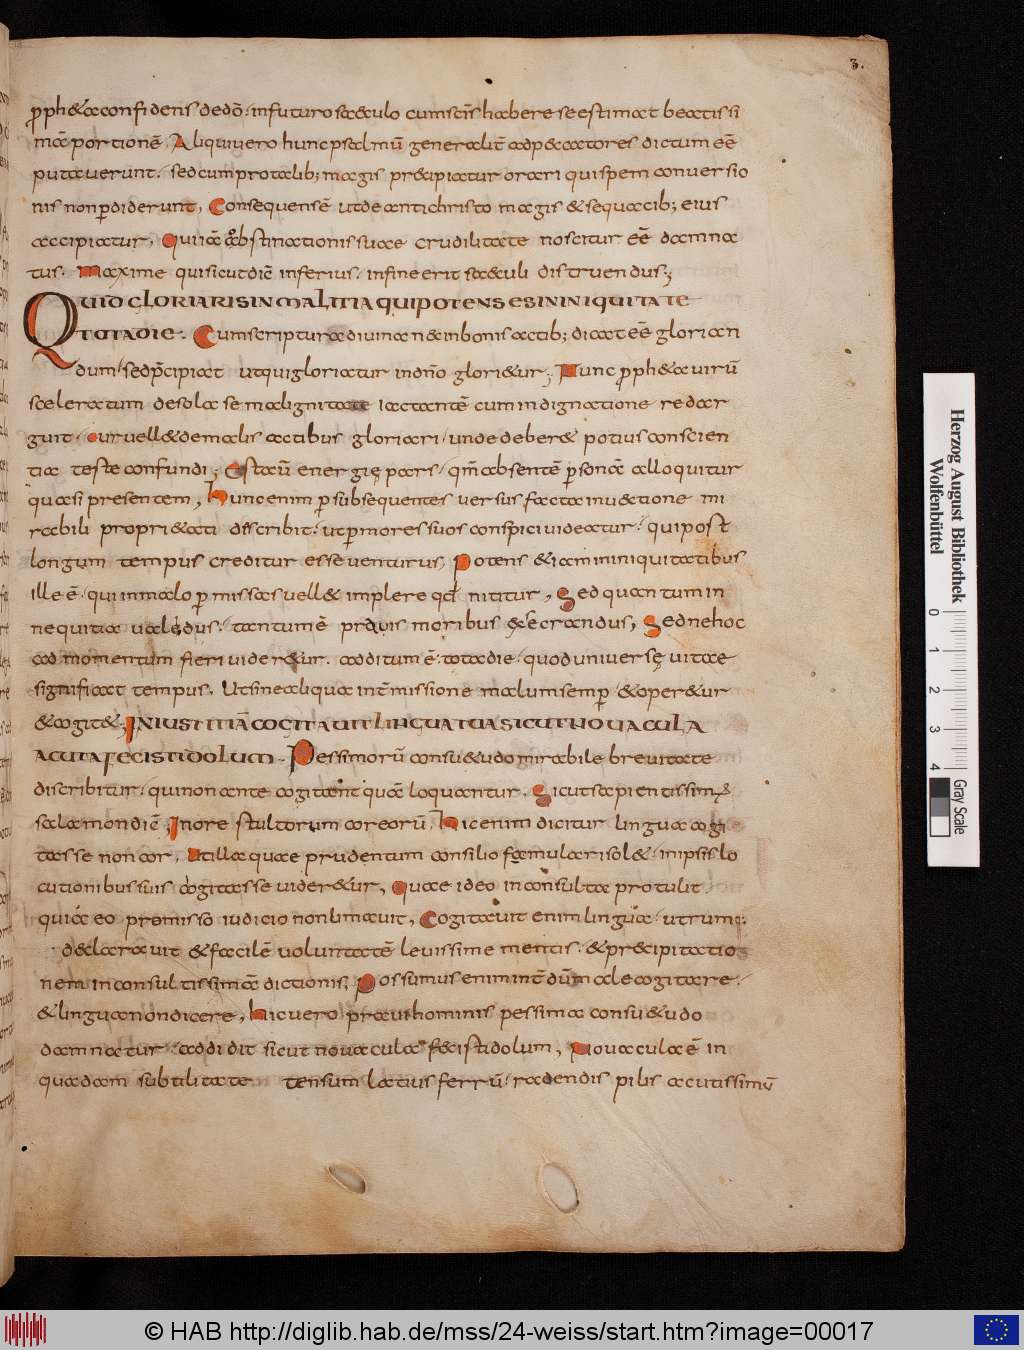 3.
ꝓph&a confidens de dõ. in futuro sæculo cum scīs habere se estimat beatissi
mã portionẽ, Aliqui uero hunc psalmũ generalit̃ ad p&catores dictum eẽ
putauerunt. sed cum pro talib; magis pr&cipiatur orari qui spem conuersio
nis non ꝑdiderunt, Consequens ẽ ut de antichristo magis & sequacib; eius
accipiatur, Qui iã obstinationis suae crudilitate noscitur eẽ damna
tus. Maxime qui sicut dic̃ inferius. in fine erit sæculi distruendus;
QUID GLORIARIS IN MALITIA QUI POTENS ES IN INIQUITATE
TOTA DIE. Cum scriptura diuina n& in bonis actib; dicat eẽ glorian
dum, sed p̃cipiat ut qui gloriatur in dn̄o glori&ur; Nunc ꝓph&a uirũ
sceleratum de sola se malignitate iactantẽ cum indignatione redar
guit. cur uell& de malis actibus gloriari, unde deber& potius conscien
tiae teste confundi; Ista ũ energię pars. qm̃ absentẽ ꝑsonã alloquitur
quasi presentem, Hunc enim ꝑ subsequentes uersus facta inu&ctione mi
rabili propri&ati describit. ut ꝑ mores suos conspici uideatur. qui post
longum tempus creditur esse uenturus, Potens &iam in iniquitatibus
ille ẽ. qui in malo ꝑmissas uell& implere qd̃ nititur, Sed quantum in
nequitia ualidus. tantum ẽ prauis moribus execrandus, Sed ne hoc
ad momentum fieri uider&ur. additum ẽ. tota die. quod uniuersę uitae
significat tempus. Ut sine aliqua int̃missione malum semꝑ & oper&ur
& cogit&; INIUSTITIÃ COGITAUIT LINGUA TUA SICUT NOUACULA
ACUTA FECISTI DOLUM. Pessimorũ consu&udo mirabile breuitate
discribitur. qui non ante cogitant quã loquantur. Sicut sapientissimę
salamon dic̃; In ore stultorum cor eorũ, Hic enim dicitur lingua cogi
tasse non cor, Ut illa quae prudentum consilio famulari sol&. in ipsis lo
cutionibus suis cogitasse uider&ur, Quae ideo inconsulta protulit.
quia eo promisso iudicio non limauit, Cogitauit enim lingua. utrumq;
declarauit & facilẽ uoluntatẽ leuissime mentis. & pr&cipitatio
nem inconsultissimã dictionis; Possumus enim int̃dũ male cogitare.
& lingua non dicere, Hic uero praui hominis pessima consu&udo
damnatur. addidit sicut nouacula fecisti dolum, Nouacula ẽ in
quadam subtilitate tensum latius ferrũ. radendis pilis acutissimũ
Herzog August Bibliothek
Wolfenbüttel
0 1 2 3 4
Gray Scale
© HAB http://diglib.hab.de/mss/24-weiss/start.htm?image=00017